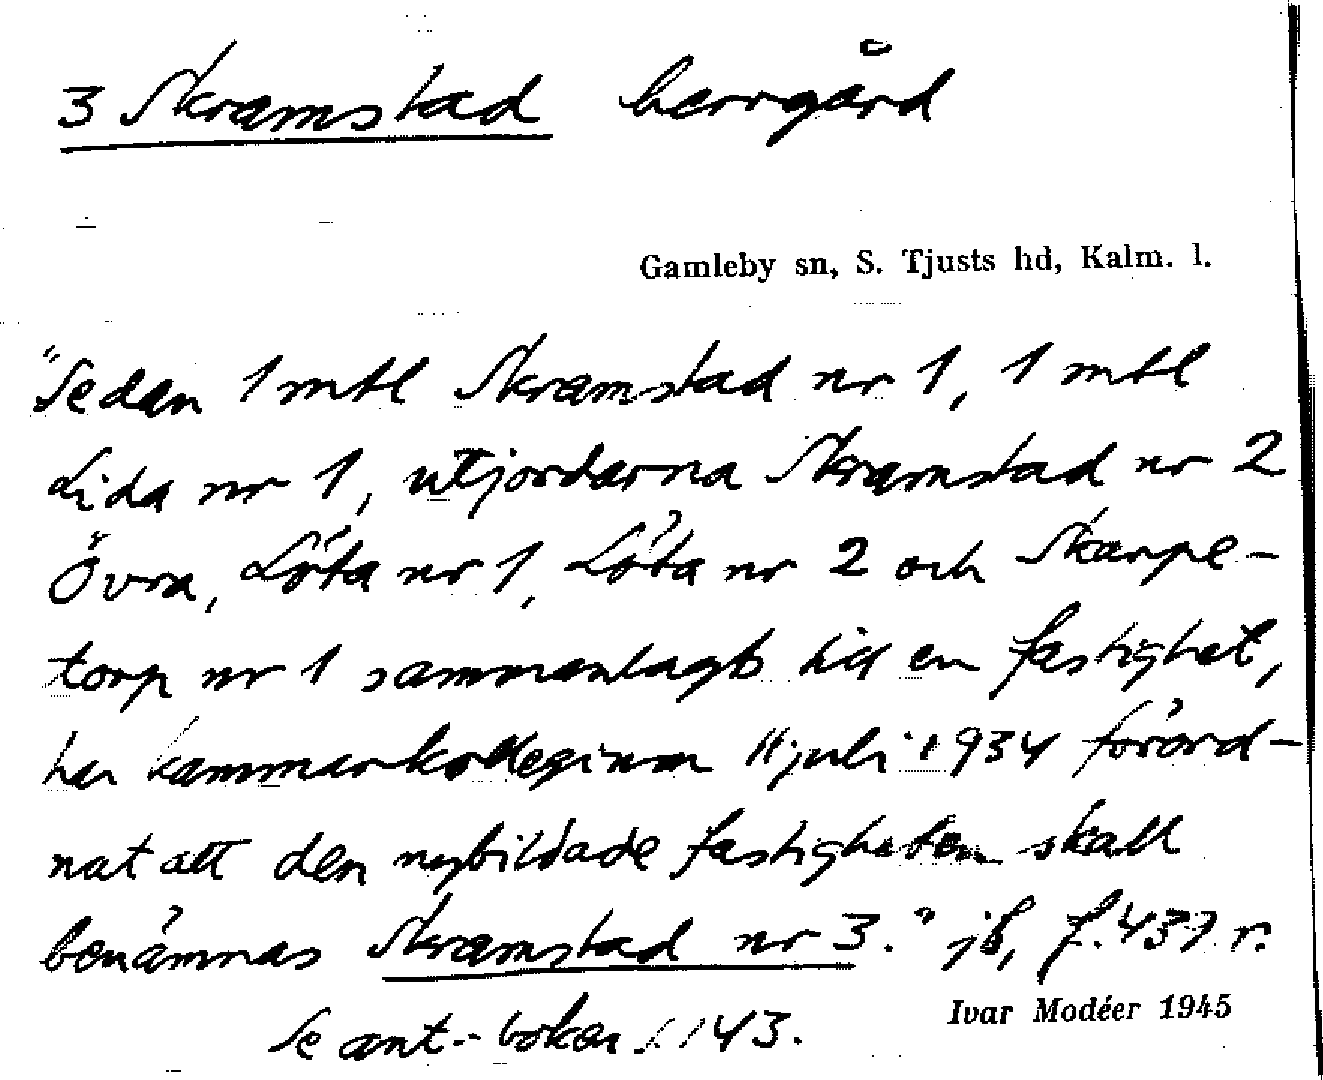 3 Skramstad herrgård
Gamleby sn, S. Tjusts hd, Kalm. l.
"Sedan 1 mtl Skramstad nr 1, 1 mtl
Lida nr 1, utjordarna Skramstad nr 2
Övra, Löta nr 1, Löta nr 2 och Skarpe-
torp nr 1 sammanlagts till en fastighet,
har kammarkollegium 11 juli 1934 förord-
nat att den nybildade fastigheten skall
benämnas Skramstad nr 3." jb, f. 437 r.
Ivar Modéer 1945
Se ant.-boken s. 143.